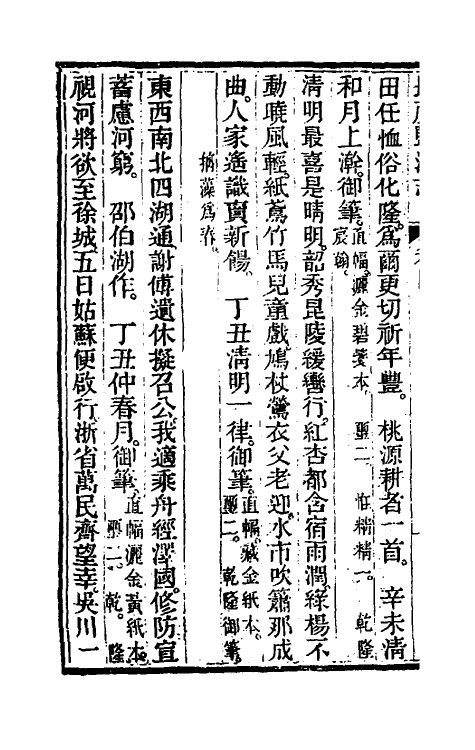 田任恤俗化隆。爲爾更切祈年豐。　桃源耕者一首。　辛未清
和月上澣。御筆。直幅。灑金碧箋本。宸翰。　璽二。　惟精惟一。　乾隆
清明最喜是晴明。韶秀昆陵緩轡行。紅杏都含宿雨潤。綠楊不
動曉風輕。紙鳶竹馬兒童戲。鳩杖鶯衣父老迎。水市吹簫那成
曲。人家遙識賣新餳。　丁丑清明一律。御筆。直幅。藏金紙本。璽二。　乾隆御筆。
摛藻爲春。
東西南北四湖通。謝傅遺休擬召公。我適乘舟經澤國。修防宣
蓄慮河窮。　邵伯湖作。　丁丑仲春月。御筆。直幅。灑金黃紙本。璽二。　乾。　隆
視河將欲至徐城。五日姑蘇便啟行。浙省萬民齊望幸。吳川一